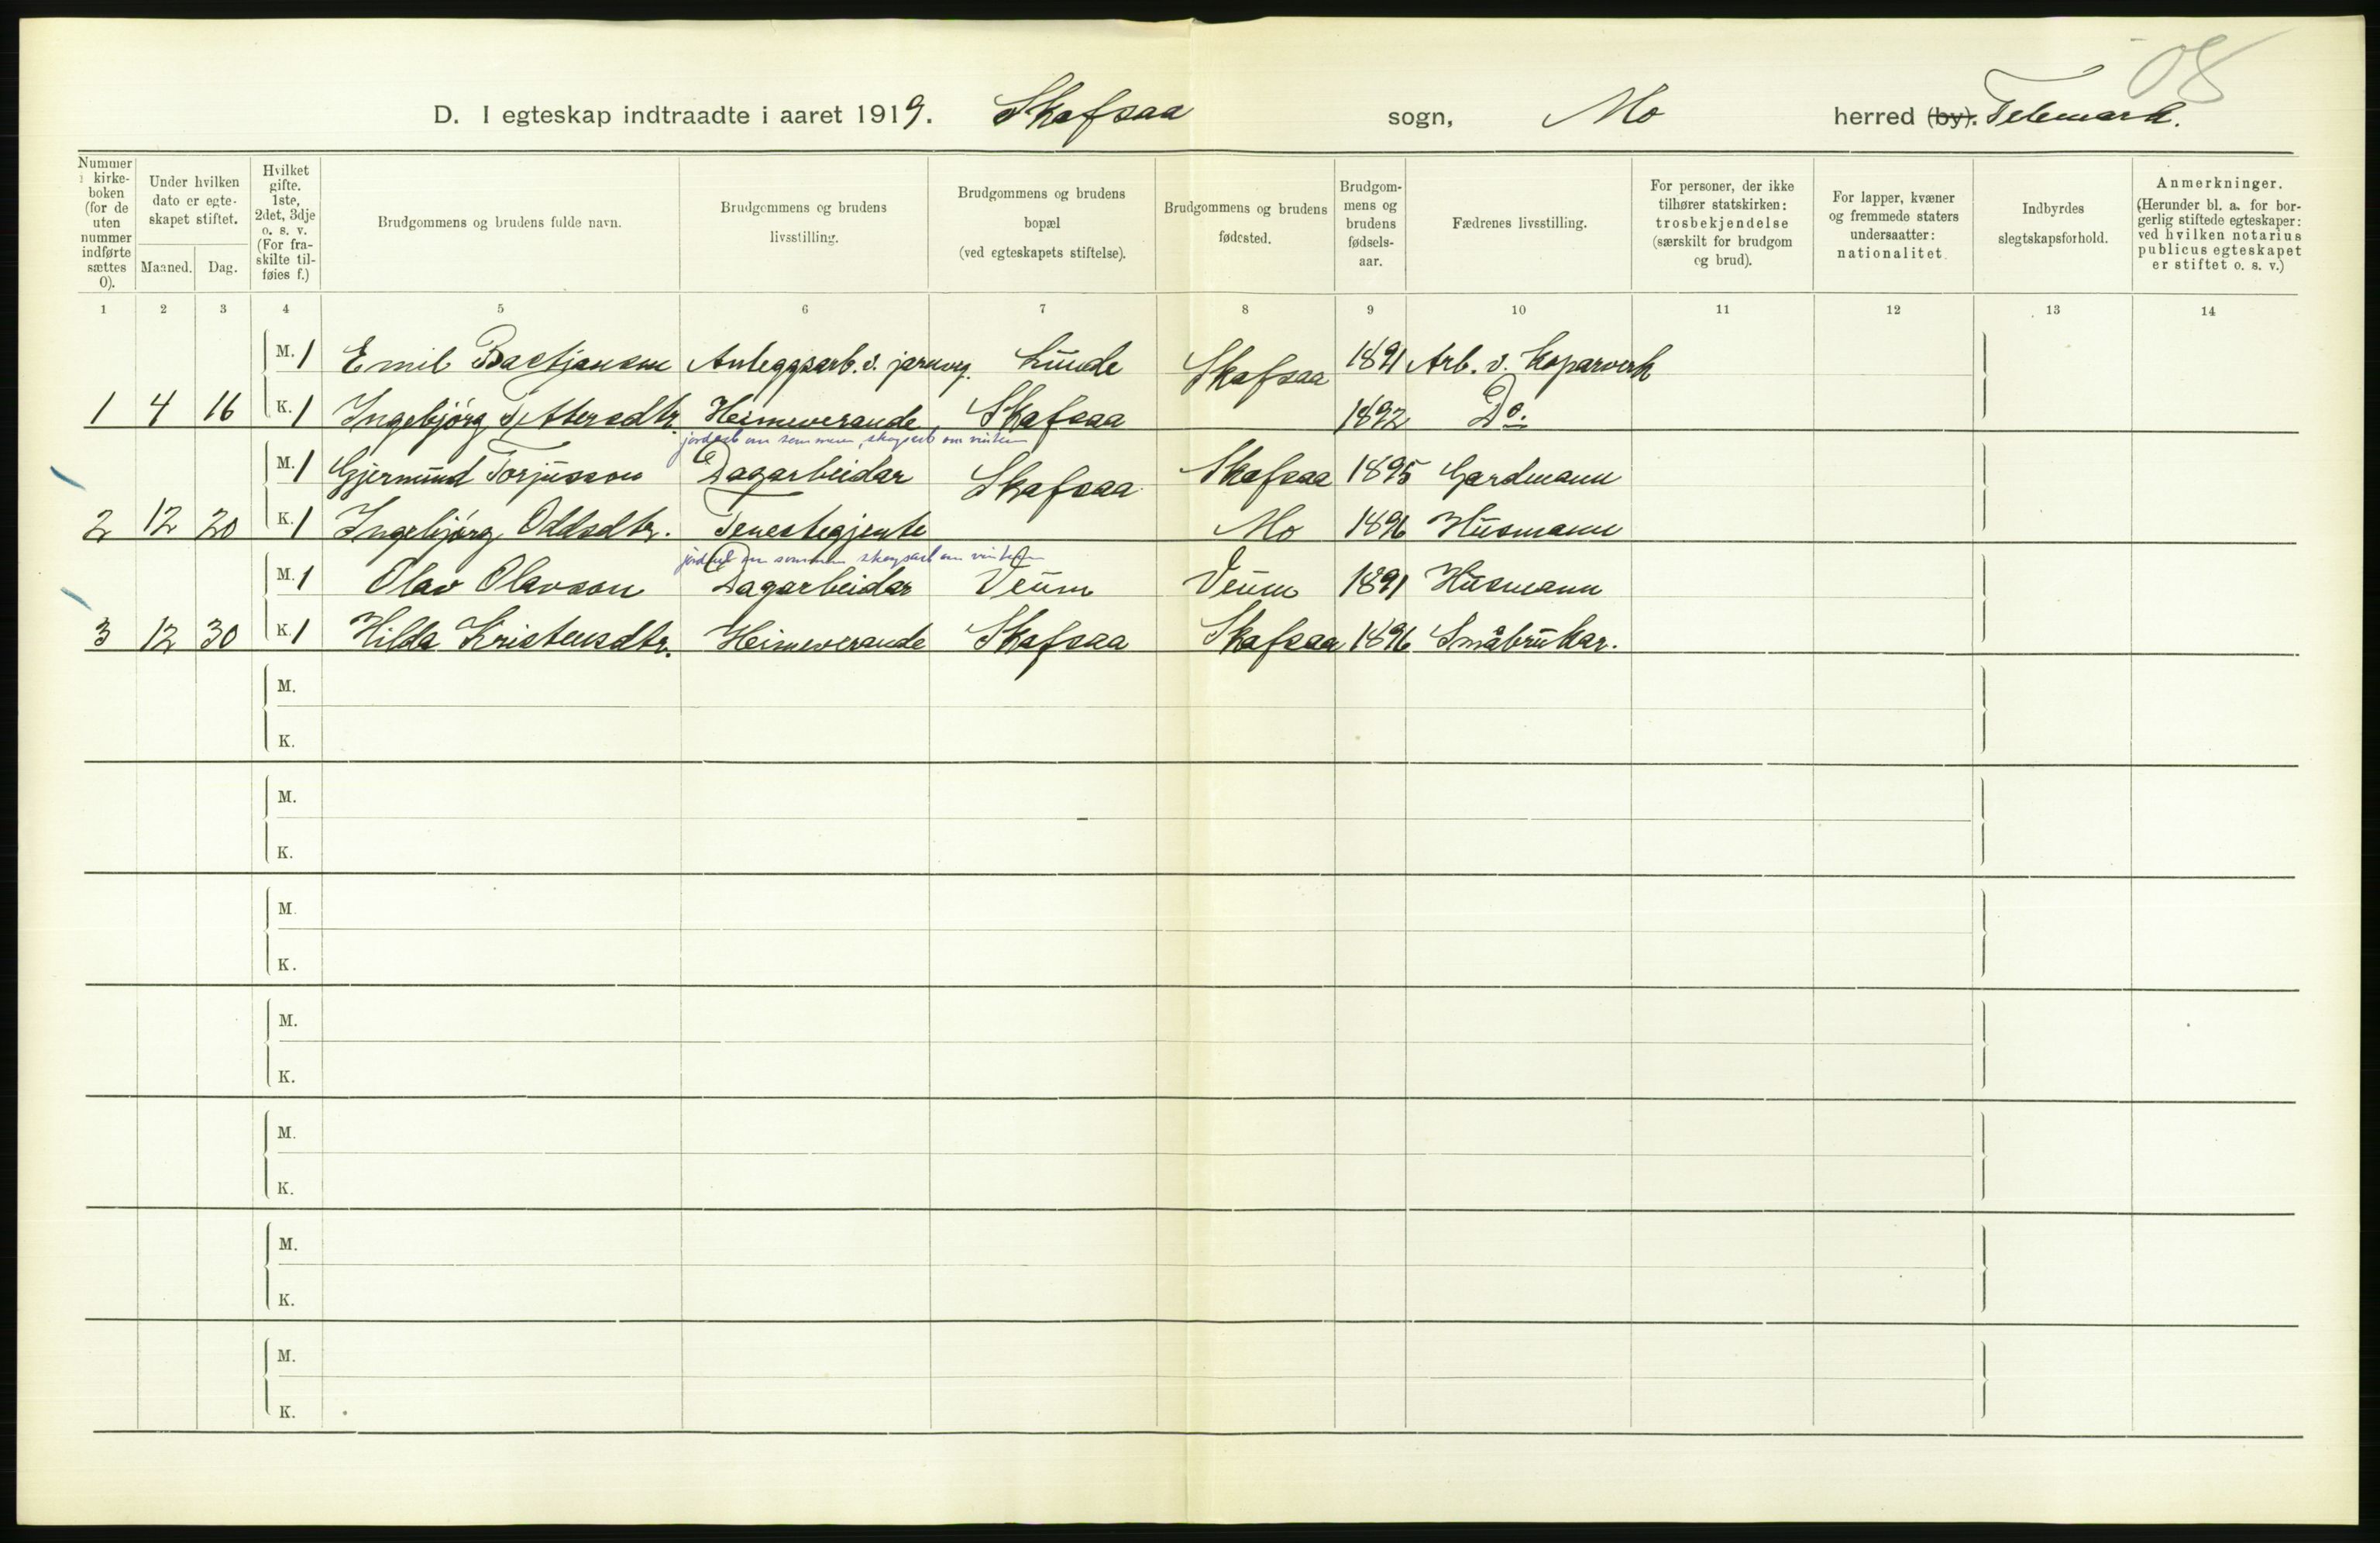 08
D. I egteskap indtraadte i aaret 1919. Skafsaa sogn, Mo herred (by). Telemark.
Nummer i kirkeboken (for de uten nummer indførte sættes 0).
Under hvilken dato er egteskapet stiftet.
Maaned. Dag.
Hvilket gifte. 1ste, 2det, 3dje o. s. v. (For fraskilte tilføies f.)
Brudgommens og brudens fulde navn.
Brudgommens og brudens livsstilling.
Brudgommens og brudens bopæl (ved egteskapets stiftelse).
Brudgommens og brudens fødested.
Brudgommens og brudens fødselsaar.
Fædrenes livsstilling.
For personer, der ikke tilhører statskirken: trosbekjendelse (særskilt for brudgom og brud).
For lapper, kvæner og fremmede staters undersaatter: nationalitet.
Indbyrdes slegtskapsforhold.
Anmerkninger. (Herunder bl. a. for borgerlig stiftede egteskaper: ved hvilken notarius publicus egteskapet er stiftet o. s. v.)
1 2 3 4 5 6 7 8 9 10 11 12 13 14
M. 1 Emil Bastjansen Anleggsarb. v. jarnveg. Lunde Skafsaa 1891 Arb. v. Koparverk
1 4 16 K. 1 Ingebjørg Pettersdtr. Heimeverande Skafsaa 1892 Do.
jordarb om sommeren, skogsarb om vinteren
M. 1 Gjermund Torjusson Dagarbeidar Skafsaa Skafsaa 1895 Gardmann
2 12 20 K. 1 Ingebjørg Oddsdtr. Tenestegjente Mo 1896 Husmann
jordarb om sommeren skogsarb om vinteren
M. 1 Olav Olavson Dagarbeidar Veum Veum 1891 Husmann
3 12 30 K. 1 Hilda Kristensdtr. Heimeverande Skafsaa Skafsaa 1896 Småbrukar.
M.
K.
M.
K.
M.
K.
M.
K.
M.
K.
M.
K.
M.
K.